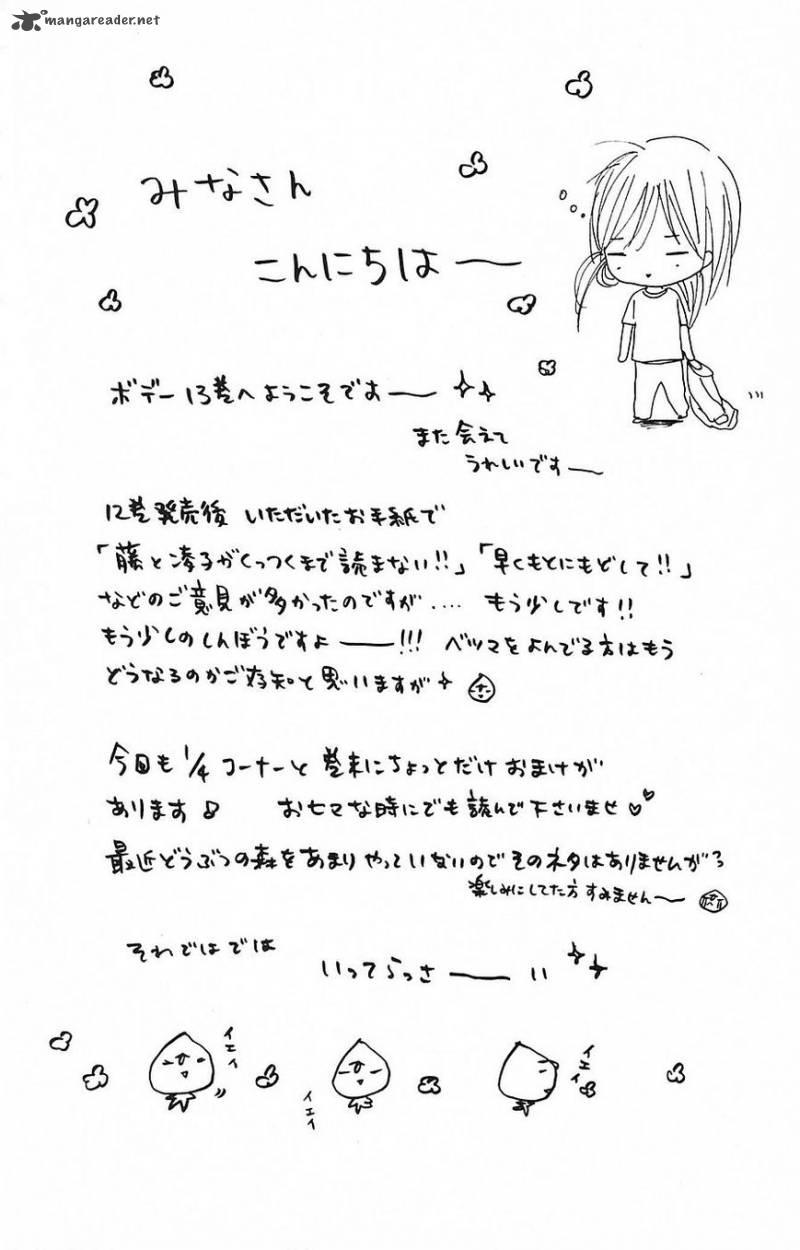 mangareader.net
みなさん
こんにちは〜
ボデー13巻へようこそです〜
また会えて
うれしいです〜
12巻発売後 いただいたお手紙で
「藤と凌子がくっつくまで読まない!!」「早くもとにもどして!!」
などのご意見が多かったのですが.... もう少しです!!
もう少しのしんぼうですよ〜!!! ベツマをよんでる方はもう
どうなるのかご存知と思いますが
今回も1/4コーナーと巻末にちょっとだけおまけが
あります♪ おヒマな時にでも読んで下さいませ♡♡
最近どうぶつの森をあまりやっていないのでそのネタはありませんが
楽しみにしてた方すみません〜
それではでは
いってらっさ〜い
イエイ
イエイ
イエイ